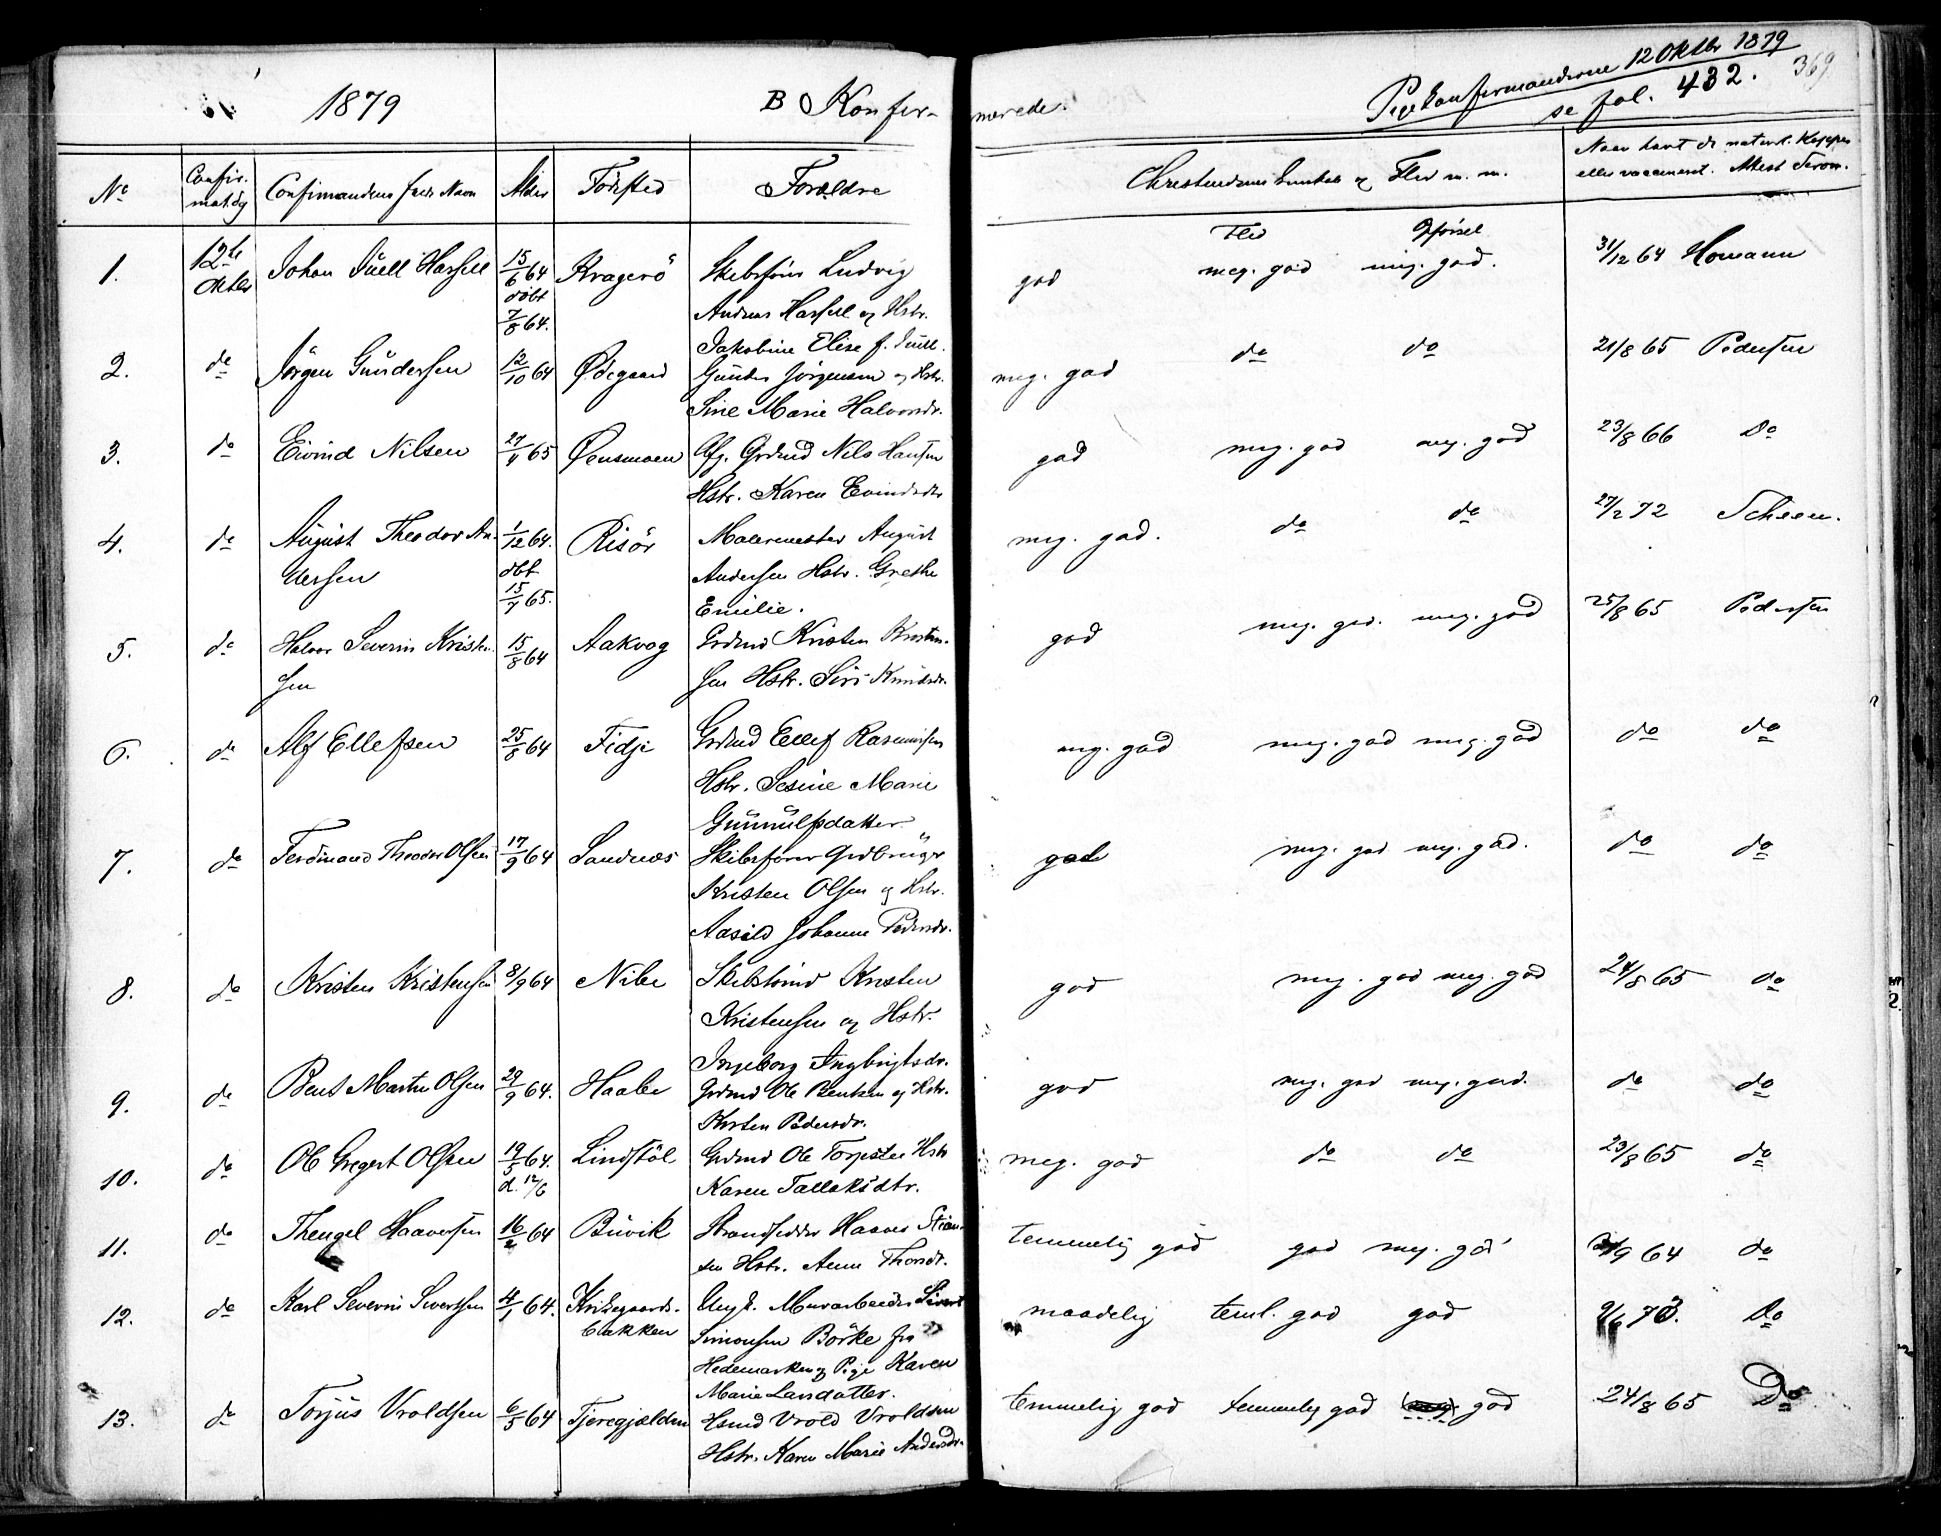 1879 B Konfirmerede.
Pigekonfirmanderne 12 Oktbr 1879
se fol. 432. 369
No Confirmat.dg Confirmandens fulde Navn Alder Fødested Forældre Christendomskundskab og Flid m. m. Naar havt de naturl. Kopper
eller vaccineret. Attest derom.
Flid Opførsel
1. 12te Oktbr Johan Juell Hassell 15/6 64 døbt 7/8 64. Kragerö Skibsfører Ludvig god meg. god meg. god. 31/12 64 Homann
Andreas Hassell og Hstr.
Jakobine Elise f. Juell.
2. do Jörgen Gundersen 12/10 64 Ødegaard Gunder Jörgensen og Hstr. meg. god do do 21/8 65 Pedersen
Sine Marie Halvorsdr.
3. do Eivind Nilsen 27/4 65 Øensmoen Afg. Grdmd Nils Hansen god meg. god meg. god 23/8 66 Do
Hstr. Karen Evindsdtr
4. do August Theodor An- 1/12 64. Risör Malermester August meg. god. do do 27/2 72 Scheen.
dersen dbt 15/4 65. Andersen Hstr. Grethe
Emilie.
5. do Halvor Severin Kristen- 15/8 64 Aakvog Grdmd Kristen Kristen- god meg. god. meg. god 25/8 65 Pedersen
sen sen Hstr. Siri Knudsdr.
6. do Alf Ellefsen 25/8 64 Fidje Grdmd Ellef Rasmussen meg. god meg. god meg. god do do
Hstr. Sesine Marie
Gunnulfsdatter
7. do Ferdinand Theodor Olsen 17/9 64 Sandnæs Skibsfører Grdbruger god meg. god meg. god. do do
Kristen Olsen og Hstr.
Aasild Johanne Pedersdr.
8. do Kristen Kristensen 8/9 64 Nibe Skibstömd Kristen god meg. god meg. god 24/8 65 do
Kristensen og Hstr.
Ingeborg Ingbrigtsdr.
9. do Bent Martin Olsen 29/9 64. Haabe Grdmd Ole Bentsen og Hstr. god meg. god meg. god. do do
Kirsten Pedersdr.
10. do Ole Gregert Olsen 19/5 64. d. 12/6 Lindstöl Grdmd Ole Torgersen Hstr meg. god do do 23/8 65 do
Karen Tallaksdtr.
11. do Thengel Haaversen 16/2 64 Buvik Strandsidder Haaver Stian- temmelig god god meg. god /9 64 do
sen Hstr. Anne Thorsdr.
12. do Karl Severin Sivertsen 4/1 64. Kirkegaards- Ungk. Murarbeider Sivert maadelig teml. god god 9/6 73. Do
bakken Simonsen Börke fra
Hedemarken og Pige Karen
Marie Larsdatter.
13. do Torjus Vroldsen 6/5 64 Tjeregjælden Hsmd Vrold Vroldsen temmelig god temmelig god god 24/8 65 Do
Hstr. Karen Marie Andersdr.